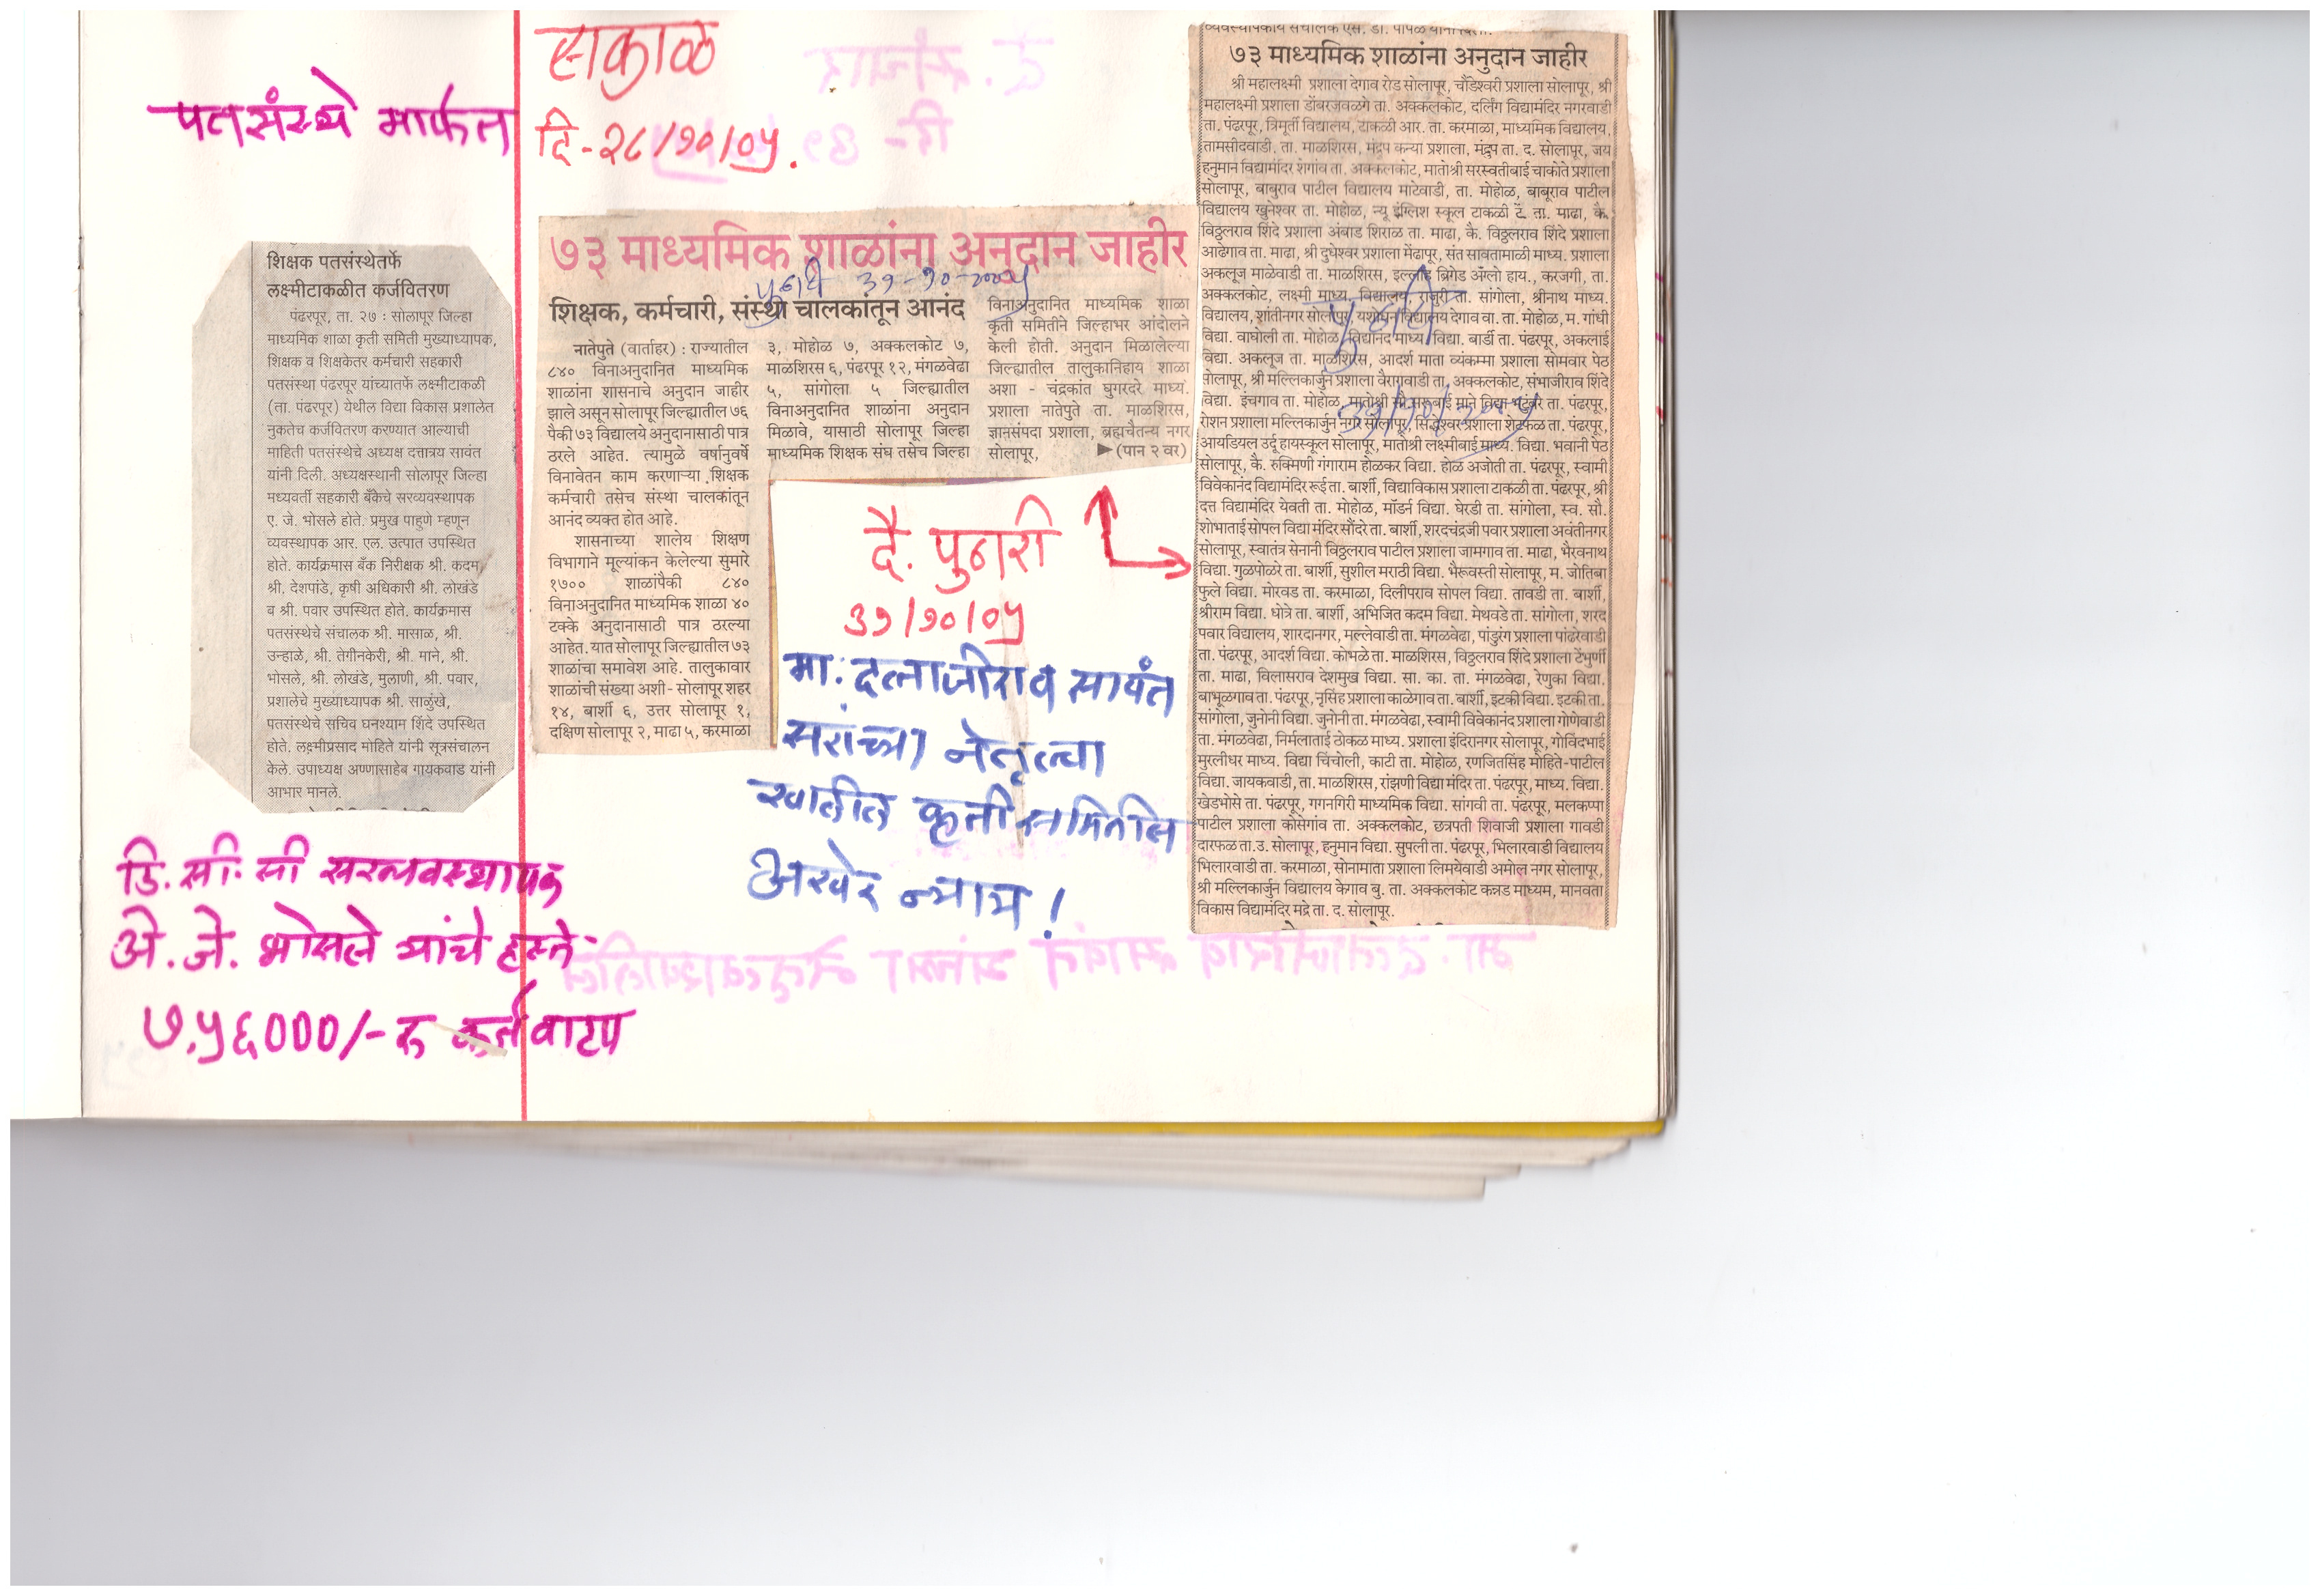 पतसंस्थे मार्फत
सकाळ
दि-२८/१०/०५.
शिक्षक पतसंस्थेतर्फे
लक्ष्मीटाकळीत कर्जवितरण
पंढरपूर, ता. २७ : सोलापूर जिल्हा
माध्यमिक शाळा कृती समिती मुख्याध्यापक,
शिक्षक व शिक्षकेतर कर्मचारी सहकारी
पतसंस्था पंढरपूर यांच्यातर्फे लक्ष्मीटाकळी
(ता. पंढरपूर) येथील विद्या विकास प्रशालेत
नुकतेच कर्जवितरण करण्यात आल्याची
माहिती पतसंस्थेचे अध्यक्ष दत्तात्रय सावंत
यांनी दिली. अध्यक्षस्थानी सोलापूर जिल्हा
मध्यवर्ती सहकारी बँकेचे सरव्यवस्थापक
ए. जे. भोसले होते. प्रमुख पाहुणे म्हणून
व्यवस्थापक आर. एल. उत्पात उपस्थित
होते. कार्यक्रमास बँक निरीक्षक श्री. कदम,
श्री. देशपांडे, कृषी अधिकारी श्री. लोखंडे
व श्री. पवार उपस्थित होते. कार्यक्रमास
पतसंस्थेचे संचालक श्री. मासाळ, श्री.
उन्हाळे, श्री. तेगीनकेरी, श्री. माने, श्री.
भोसले, श्री. लोखंडे, मुलाणी, श्री. पवार,
प्रशालेचे मुख्याध्यापक श्री. साळुंखे,
पतसंस्थेचे सचिव घनश्याम शिंदे उपस्थित
होते. लक्ष्मीप्रसाद मोहिते यांनी सूत्रसंचालन
केले. उपाध्यक्ष अण्णासाहेब गायकवाड यांनी
आभार मानले.
डि. सी. सी सरव्यवस्थापक
अे. जे. भोसले यांचे हस्ते
७,५६०००/- रु कर्ज वाटप
७३ माध्यमिक शाळांना अनुदान जाहीर
पुढारी ३१-१०-२००५
शिक्षक, कर्मचारी, संस्था चालकांतून आनंद
नातेपुते (वार्ताहर) : राज्यातील
८४० विनाअनुदानित माध्यमिक
शाळांना शासनाचे अनुदान जाहीर
झाले असून सोलापूर जिल्ह्यातील ७६
पैकी ७३ विद्यालये अनुदानासाठी पात्र
ठरले आहेत. त्यामुळे वर्षानुवर्षे
विनावेतन काम करणाऱ्या शिक्षक
कर्मचारी तसेच संस्था चालकांतून
आनंद व्यक्त होत आहे.
शासनाच्या शालेय शिक्षण
विभागाने मूल्यांकन केलेल्या सुमारे
१७०० शाळांपैकी ८४०
विनाअनुदानित माध्यमिक शाळा ४०
टक्के अनुदानासाठी पात्र ठरल्या
आहेत. यात सोलापूर जिल्ह्यातील ७३
शाळांचा समावेश आहे. तालुकावार
शाळांची संख्या अशी- सोलापूर शहर
१४, बार्शी ६, उत्तर सोलापूर १,
दक्षिण सोलापूर २, माढा ५, करमाळा
३, मोहोळ ७, अक्कलकोट ७,
माळशिरस ६, पंढरपूर १२, मंगळवेढा
५, सांगोला ५ जिल्ह्यातील
विनाअनुदानित शाळांना अनुदान
मिळावे, यासाठी सोलापूर जिल्हा
माध्यमिक शिक्षक संघ तसेच जिल्हा
विनाअनुदानित माध्यमिक शाळा
कृती समितीने जिल्हाभर आंदोलने
केली होती. अनुदान मिळालेल्या
जिल्ह्यातील तालुकानिहाय शाळा
अशा - चंद्रकांत घुगरदरे माध्य.
प्रशाला नातेपुते ता. माळशिरस,
ज्ञानसंपदा प्रशाला, ब्रह्मचैतन्य नगर
सोलापूर, ▶(पान २ वर)
दै. पुढारी
३१/१०/०५
मा. दत्ताजीराव सावंत
सरांच्या नेतृत्वा
खालील कृती समितीस
अखेर न्याय !
व्यवस्थापकीय संचालक एस. डी.
७३ माध्यमिक शाळांना अनुदान जाहीर
श्री महालक्ष्मी प्रशाला देगाव रोड सोलापूर, चौंडेश्वरी प्रशाला सोलापूर, श्री
महालक्ष्मी प्रशाला डोंबरजवळगे ता. अक्कलकोट, दर्लिंग विद्यामंदिर नगरवाडी
ता. पंढरपूर, त्रिमूर्ती विद्यालय, टाकळी आर. ता. करमाळा, माध्यमिक विद्यालय,
तामसीदवाडी, ता. माळशिरस, मंद्रुप कन्या प्रशाला, मंद्रुप ता. द. सोलापूर, जय
हनुमान विद्यामंदिर शेगांव ता. अक्कलकोट, मातोश्री सरस्वतीबाई चाकोते प्रशाला
सोलापूर, बाबुराव पाटील विद्यालय माटेवाडी, ता. मोहोळ, बाबूराव पाटील
विद्यालय खुनेश्वर ता. मोहोळ, न्यू इंग्लिश स्कूल टाकळी टें. ता. माढा, कै.
विठ्ठलराव शिंदे प्रशाला अंबाड शिराळ ता. माढा, कै. विठ्ठलराव शिंदे प्रशाला
आढेगाव ता. माढा, श्री दुधेश्वर प्रशाला मेंढापूर, संत सावतामाळी माध्य. प्रशाला
अकलूज माळेवाडी ता. माळशिरस, इल्लाह ब्रिगेड अँग्लो हाय., करजगी, ता.
अक्कलकोट, लक्ष्मी माध्य. विद्यालय, राजुरी ता. सांगोला, श्रीनाथ माध्य.
विद्यालय, शांतीनगर सोलापूर, यशोधन विद्यालय देगाव वा. ता. मोहोळ, म. गांधी
विद्या. वाघोली ता. मोहोळ, विद्यानंद माध्य विद्या. बार्डी ता. पंढरपूर, अकलाई
विद्या. अकलूज ता. माळशिरस, आदर्श माता व्यंकम्मा प्रशाला सोमवार पेठ
सोलापूर, श्री मल्लिकार्जुन प्रशाला वैरागवाडी ता. अक्कलकोट, संभाजीराव शिंदे
विद्या. इंचगाव ता. मोहोळ, मातोश्री माने विद्या ता. पंढरपूर,
रोशन प्रशाला मल्लिकार्जुन नगर सोलापूर, सिद्धेश्वर प्रशाला शेटफळ ता. पंढरपूर,
आयडियल उर्दू हायस्कूल सोलापूर, मातोश्री लक्ष्मीबाई माध्य. विद्या. भवानी पेठ
सोलापूर, कै. रुक्मिणी गंगाराम होळकर विद्या. होळ अजोती ता. पंढरपूर, स्वामी
विवेकानंद विद्यामंदिर रूई ता. बार्शी, विद्याविकास प्रशाला टाकळी ता. पंढरपूर, श्री
दत्त विद्यामंदिर येवती ता. मोहोळ, मॉडर्न विद्या. घेरडी ता. सांगोला, स्व. सौ.
शोभाताई सोपल विद्या मंदिर सौंदरे ता. बार्शी, शरदचंद्रजी पवार प्रशाला अवंतीनगर
सोलापूर, स्वातंत्र सेनानी विठ्ठलराव पाटील प्रशाला जामगाव ता. माढा, भैरवनाथ
विद्या. गुळपोळरे ता. बार्शी, सुशील मराठी विद्या. भैरूवस्ती सोलापूर, म. जोतिबा
फुले विद्या. मोरवड ता. करमाळा, दिलीपराव सोपल विद्या. तावडी ता. बार्शी,
श्रीराम विद्या. धोत्रे ता. बार्शी, अभिजित कदम विद्या. मेथवडे ता. सांगोला, शरद
पवार विद्यालय, शारदानगर, मल्लेवाडी ता. मंगळवेढा, पांडुरंग प्रशाला पांढरेवाडी
ता. पंढरपूर, आदर्श विद्या. कोभळे ता. माळशिरस, विठ्ठलराव शिंदे प्रशाला टेंभुर्णी
ता. माढा, विलासराव देशमुख विद्या. सा. का. ता. मंगळवेढा, रेणुका विद्या.
बाभूळगाव ता. पंढरपूर, नृसिंह प्रशाला काळेगाव ता. बार्शी, इटकी विद्या. इटकी ता.
सांगोला, जुनोनी विद्या. जुनोनी ता. मंगळवेढा, स्वामी विवेकानंद प्रशाला गोणेवाडी
ता. मंगळवेढा, निर्मलाताई ठोकळ माध्य. प्रशाला इंदिरानगर सोलापूर, गोविंदभाई
मुरलीधर माध्य. विद्या चिंचोली, काटी ता. मोहोळ, रणजितसिंह मोहिते-पाटील
विद्या. जायकवाडी, ता. माळशिरस, रांझणी विद्या मंदिर ता. पंढरपूर, माध्य. विद्या.
खेडभोसे ता. पंढरपूर, गगनगिरी माध्यमिक विद्या. सांगवी ता. पंढरपूर, मलकप्पा
पाटील प्रशाला कोसेगांव ता. अक्कलकोट, छत्रपती शिवाजी प्रशाला गावडी
दारफळ ता.उ. सोलापूर, हनुमान विद्या. सुपली ता. पंढरपूर, भिलारवाडी विद्यालय
भिलारवाडी ता. करमाळा, सोनामाता प्रशाला लिमयेवाडी अमोल नगर सोलापूर,
श्री मल्लिकार्जुन विद्यालय केगाव बु. ता. अक्कलकोट कन्नड माध्यम, मानवता
विकास विद्यामंदिर मद्रे ता. द. सोलापूर.
पुढारी
३१/१०/२००५